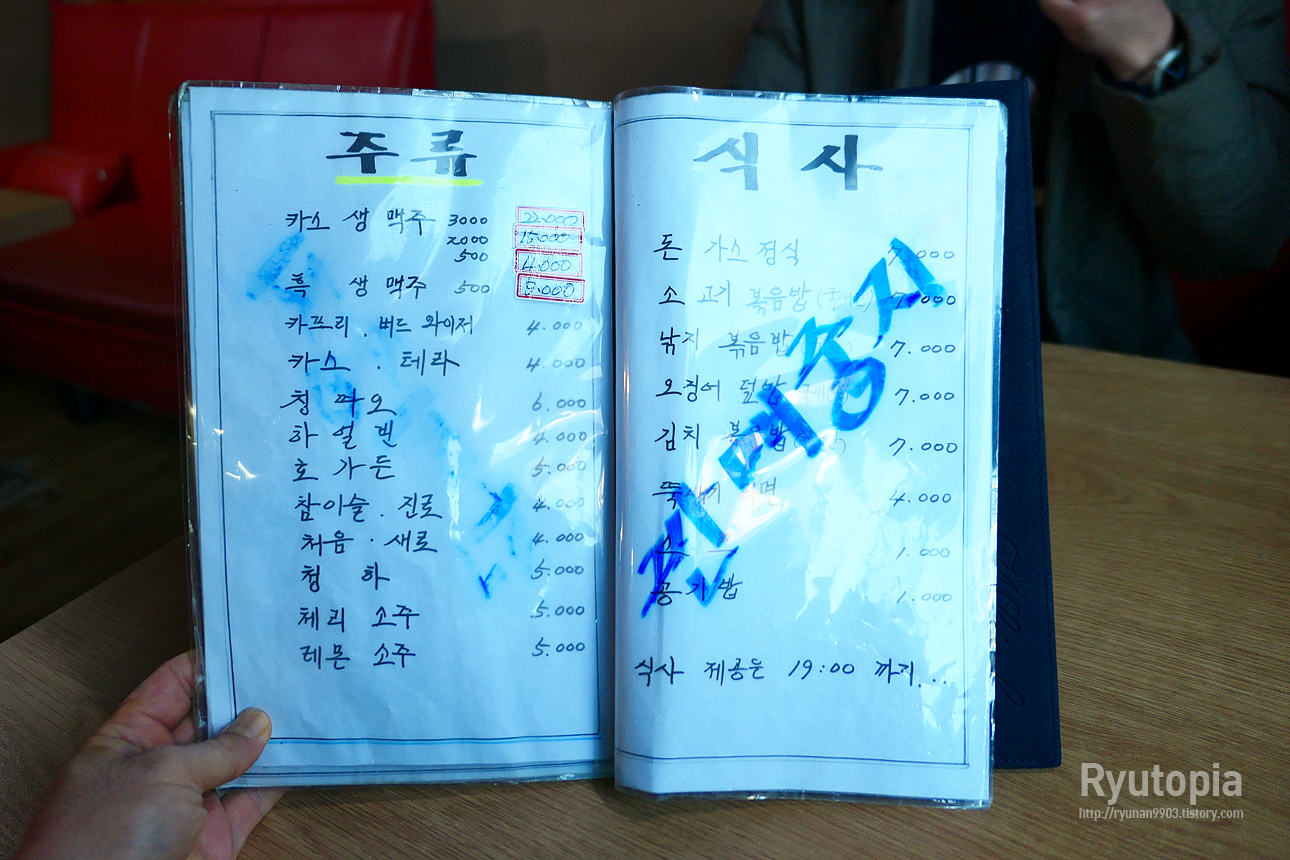 주류
카스 생 맥주 3000 22.000
2000 15.000
500 4.000
흑 생 맥주 500 5.000
카프리 . 버드 와이저 4.000
카스 . 테라 4.000
칭 따오 6.000
하 얼 빈 4.000
호 가 든 5.000
참이슬 . 진로 4.000
처음 . 새로 4.000
청 하 5.000
체리 소주 5.000
레몬 소주 5.000
식 사
돈 가스 정식 7.000
소 고기 볶음밥 7.000
낚지 볶음밥 7.000
오징어 덮밥 7.000
김치 볶음밥 7.000
4.000
1.000
공기밥 1.000
식사 제공은 19:00 까지...
Ryutopia
http://ryunan9903.tistory.com